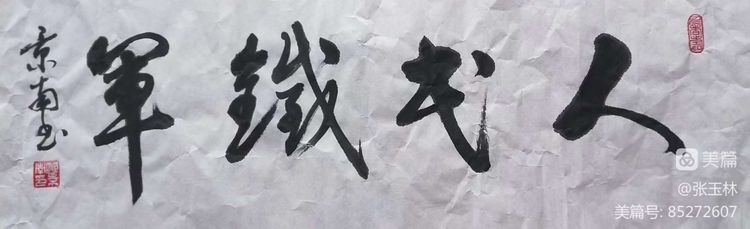 人民鐵軍
景南书
美篇
@张玉林
美篇号: 85272607